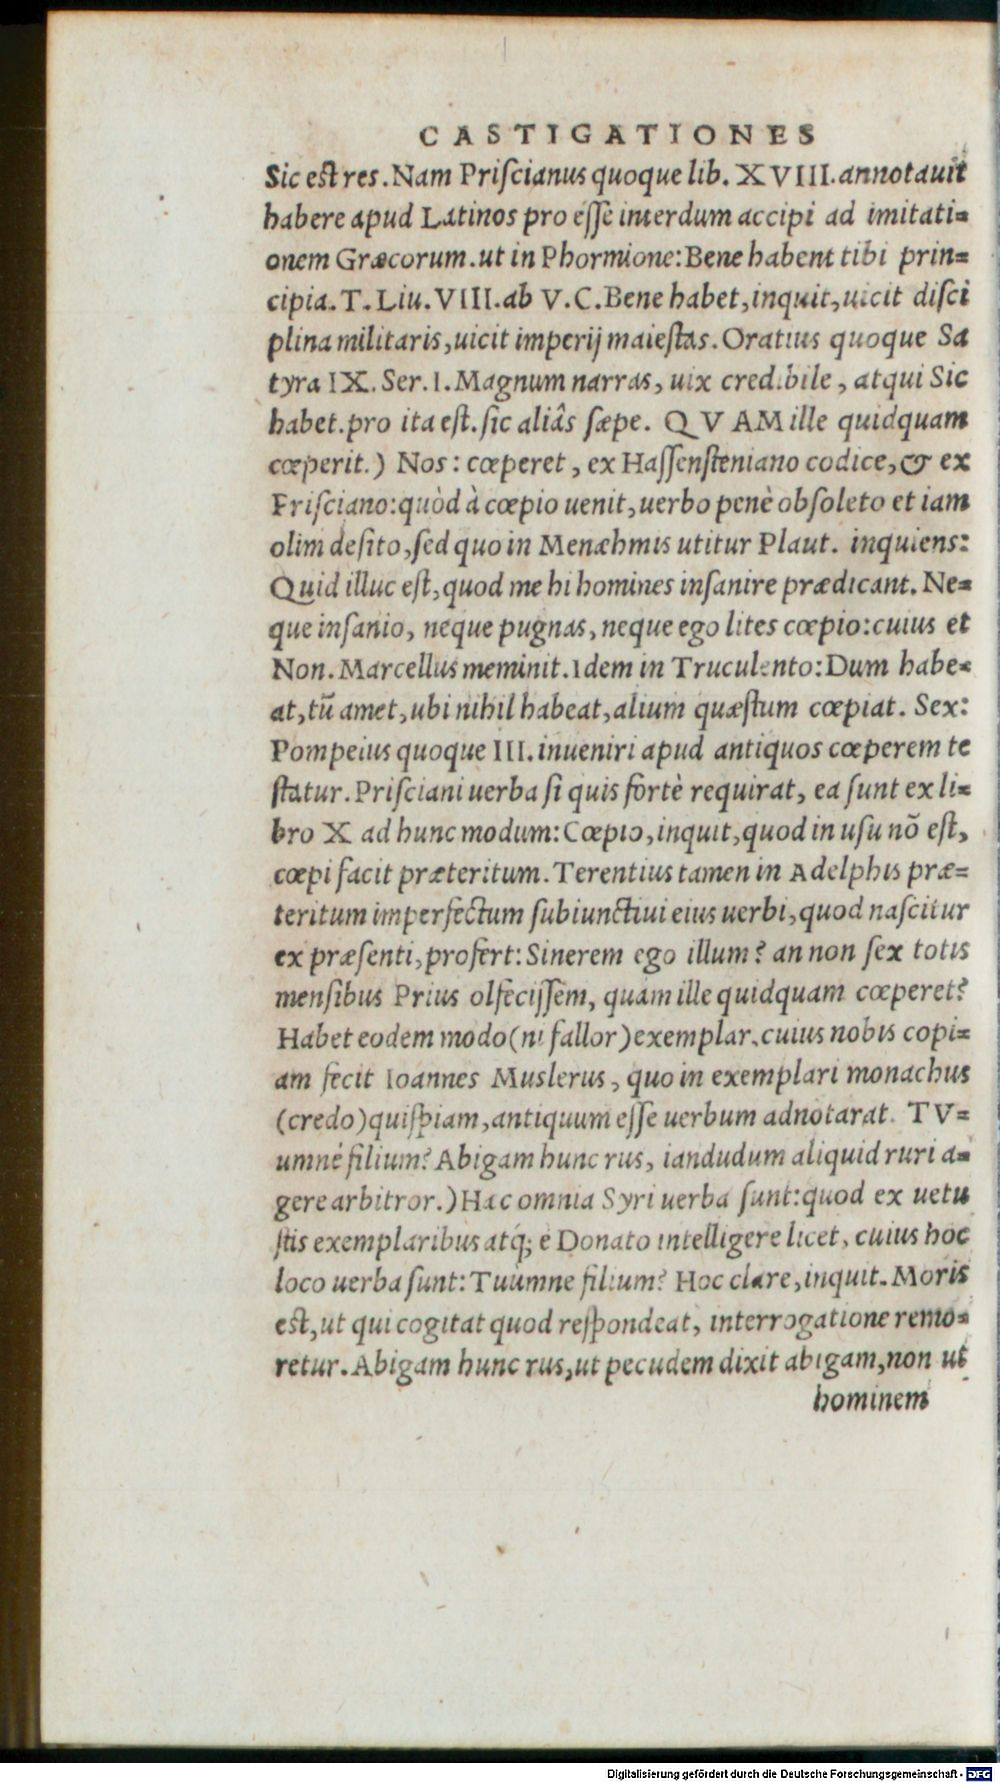 CASTIGATIONES
Sic est res. Nam Priſcianus quoque lib. XVIII. annotauit
habere apud Latinos pro eſſe interdum accipi ad imitati=
onem Græcorum. ut in Phormione: Bene habent tibi prin=
cipia. T. Liu. VIII. ab V. C. Bene habet, inquit, uicit diſci
plina militaris, uicit imperij maieſtas. Oratius quoque Sa
tyra IX. Ser. I. Magnum narras, uix credibile, atqui Sic
habet. pro ita eſt. ſic aliâs ſæpe. QVAM ille quidquam
cœperit.) Nos: cœperet, ex Haſſenſteniano codice, & ex
Priſciano: quòd à cœpio uenit, uerbo penè obſoleto et iam
olim deſito, ſed quo in Menæhmis utitur Plaut. inquiens:
Quid illuc eſt, quod me hi homines inſanire prædicant. Ne=
que inſanio, neque pugnas, neque ego lites cœpio: cuius et
Non. Marcellus meminit. Idem in Truculento: Dum habe=
at, tũ amet, ubi nihil habeat, alium quæſtum cœpiat. Sex:
Pompeius quoque III. inueniri apud antiquos cœperem te
ſtatur. Priſciani uerba ſi quis fortè requirat, ea ſunt ex li=
bro X ad hunc modum: Cœpio, inquit, quod in uſu nõ eſt,
cœpi facit præteritum. Terentius tamen in Adelphis præ=
teritum imperfectum ſubiunctiui eius uerbi, quod naſcitur
ex præſenti, profert: Sinerem ego illum? an non ſex totis
menſibus Prius olfeciſſem, quàm ille quidquam cœperet?
Habet eodem modo (ni fallor) exemplar, cuius nobis copi=
am fecit Ioannes Muslerus, quo in exemplari monachus
(credo) quiſpiam, antiquum eſſe uerbum adnotarat. TV=
umné filium? Abigam hunc rus, iandudum aliquid ruri a=
gere arbitror.) Hæc omnia Syri uerba ſunt: quod ex uetu
ſtis exemplaribus atq́; è Donato intelligere licet, cuius hoc
loco uerba ſunt: Tuùmne filium? Hoc clare, inquit. Moris
est, ut qui cogitat quod reſpondeat, interrogatione remo=
retur. Abigam hunc rus, ut pecudem dixit abigam, non ut
hominem
Digitalisierung gefördert durch die Deutsche Forschungsgemeinschaft - DFG